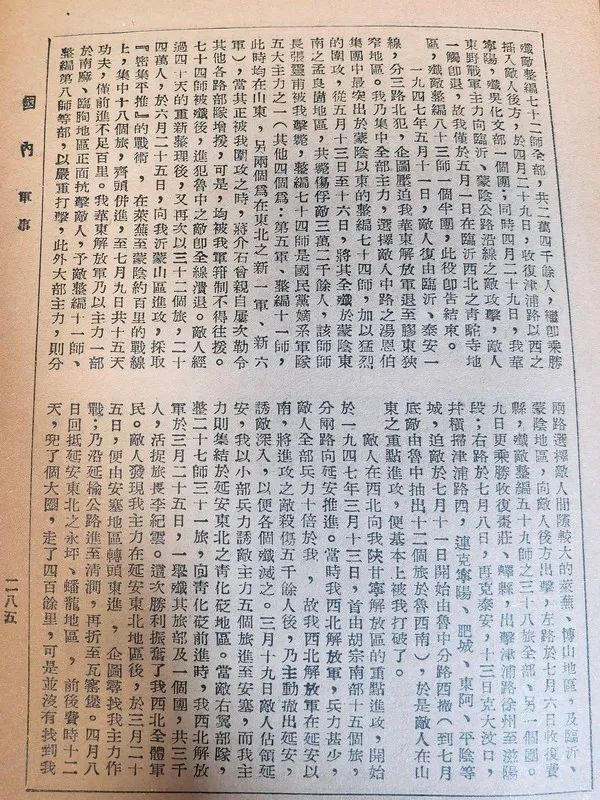 殲敵整編七十二師全部,共二萬四千餘人,繼卽乘勝
插入敵人後方,於四月二十九日,收復津浦路以西之
寧陽,殲吳化文部一個團;同時四月二十九日,我華
東野戰軍主力向臨沂、蒙陰公路沿線之敵攻擊,敵人
一觸卽退,故我僅於五月一日在臨沂西北之靑駝寺地
區,殲敵整編八十三師一個半團,此役卽告結束。
一九四七年五月十一日,敵人復由臨沂、泰安一
線,分三路北犯,企圖壓迫我華東解放軍退至膠東狹
窄地區。我乃集中全部主力,選擇敵人中路之湯恩伯
集團中最突出於蒙陰以東的整編七十四師,加以猛烈
的圍攻,從五月十三日至十六日,將其全殲於蒙陰東
南之孟良崮地區,共斃傷俘敵三萬二千餘人,該師師
長張靈甫被我擊斃,整編七十四師是國民黨嫡系軍隊
五大主力之一(其他四個爲:第五軍、整編十一師,
此時均在山東,另兩個爲在東北之新一軍、新六
軍),當其正被我圍攻之時,蔣介石曾親自屢次勒令
其他各路部隊增援,可是,均被我軍箝制不得往援。
七十四師被殲後,進犯魯中之敵卽全線潰退。敵人經
過四十天的重新整理後,又再次以三十二個旅,二十
四萬人,於六月二十五日,向我沂蒙山區進攻,採取
『密集平推』的戰術,在萊蕪至蒙陰約百里的戰線
上,集中十八個旅,齊頭併進,至七月九日共十五天
功夫,僅前進不足百里。我華東解放軍乃以主力一部
於南麻、臨朐地區正面抗擊敵人,予敵整編十一師、
整編第八師等部,以嚴重打擊,此外大部主力,則分
兩路選擇敵人間隙較大的萊蕪、博山地區,及臨沂、
蒙陰地區,向敵人後方出擊,左路於七月六日收復費
縣,殲敵整編五十九師之三十八旅全部、另一個團。
九日更乘勝收復棗莊、嶧縣,出擊津浦路徐州至滋陽
段;右路於七月八日,再克泰安,十三日克大汶口,
幷橫掃津浦路西,連克寧陽、肥城、東阿、平陰等
城,迫敵於七月十一日開始由魯中分路西撤(到七月
底敵由魯中抽出十二個旅於魯西南),於是敵人在山
東之重點進攻,便基本上被我打破了。
敵人在西北向我陝甘寧解放區的重點進攻,開始
於一九四七年三月十三日,首由胡宗南部十五個旅,
分兩路向延安推進。當時我西北解放軍,兵力甚少,
敵人全部兵力十倍於我,故我西北解放軍在延安以
南,將進攻之敵殺傷五千餘人後,乃主動撤出延安,
誘敵深入,以便各個殲滅之。三月十九日敵人佔領延
安,我以小部兵力誘敵主力五個旅進至安塞,而我主
力則集結於延安東北之靑化砭地區。當敵右翼部隊,
整二十七師三十一旅,向靑化砭前進時,我西北解放
軍於三月二十五日,一舉殲其旅部及一個團,共三千
人,活捉旅長李紀雲。這次勝利振奮了我西北全體軍
民。敵人發現我主力在延安東北地區後,於三月二十
五日,便由安塞地區轉頭東進,企圖尋找我主力作
戰;乃沿延榆公路進至清澗,再折至瓦窰堡。四月八
日回抵延安東北之永坪、蟠龍地區,前後費時十二
天,兜了個大圈,走了四百餘里,可是並沒有找到我
國內軍事
二八五